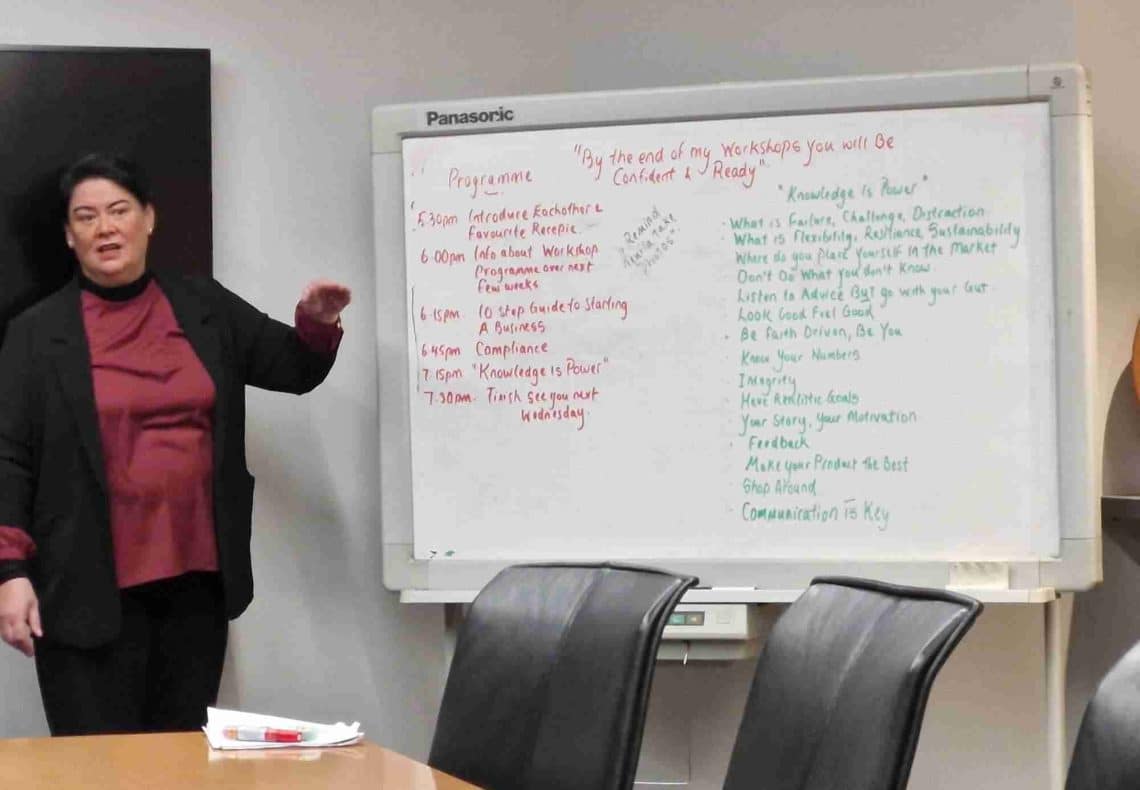 Panasonic
"By the end of my Workshops you will Be
Confident & Ready"
Programme
5.30pm Introduce Eachother &
Favourite Recepie.
6.00pm Info about Workshop
Programme over next
few weeks
6.15pm 10 Step Guide to Starting
A Business
6.45pm Compliance
7.15pm "Knowledge Is Power"
7.30pm Finish see you next
Wednesday.
"Remind
take
photos".
"Knowledge Is Power"
What is Failure, Challenge, Distraction
What is Flexibility, Resiliance, Sustainability
Where do you place yourself In the Market
Don't Do What you don't Know
Listen to Advice BUT go with your Gut
Look Good Feel Good
Be Faith Driven, Be You
Know Your Numbers
Integrity
Have Realistic Goals
Your Story, Your Motivation
Feedback
Make your Product the Best
Shop Around
Communication Is Key